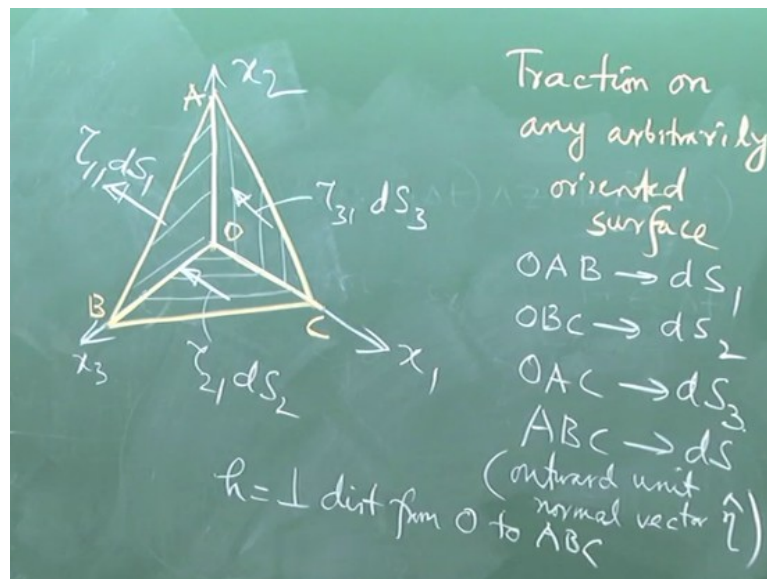 x2
A
τ11 dS1
τ31 dS3
O
B
C
x3
x1
τ21 dS2
Traction on
any arbitrarily
oriented
surface
OAB → dS1
OBC → dS2
OAC → dS3
ABC → dS
(outward unit
normal vector η̂)
h = ⊥ dist from O to ABC